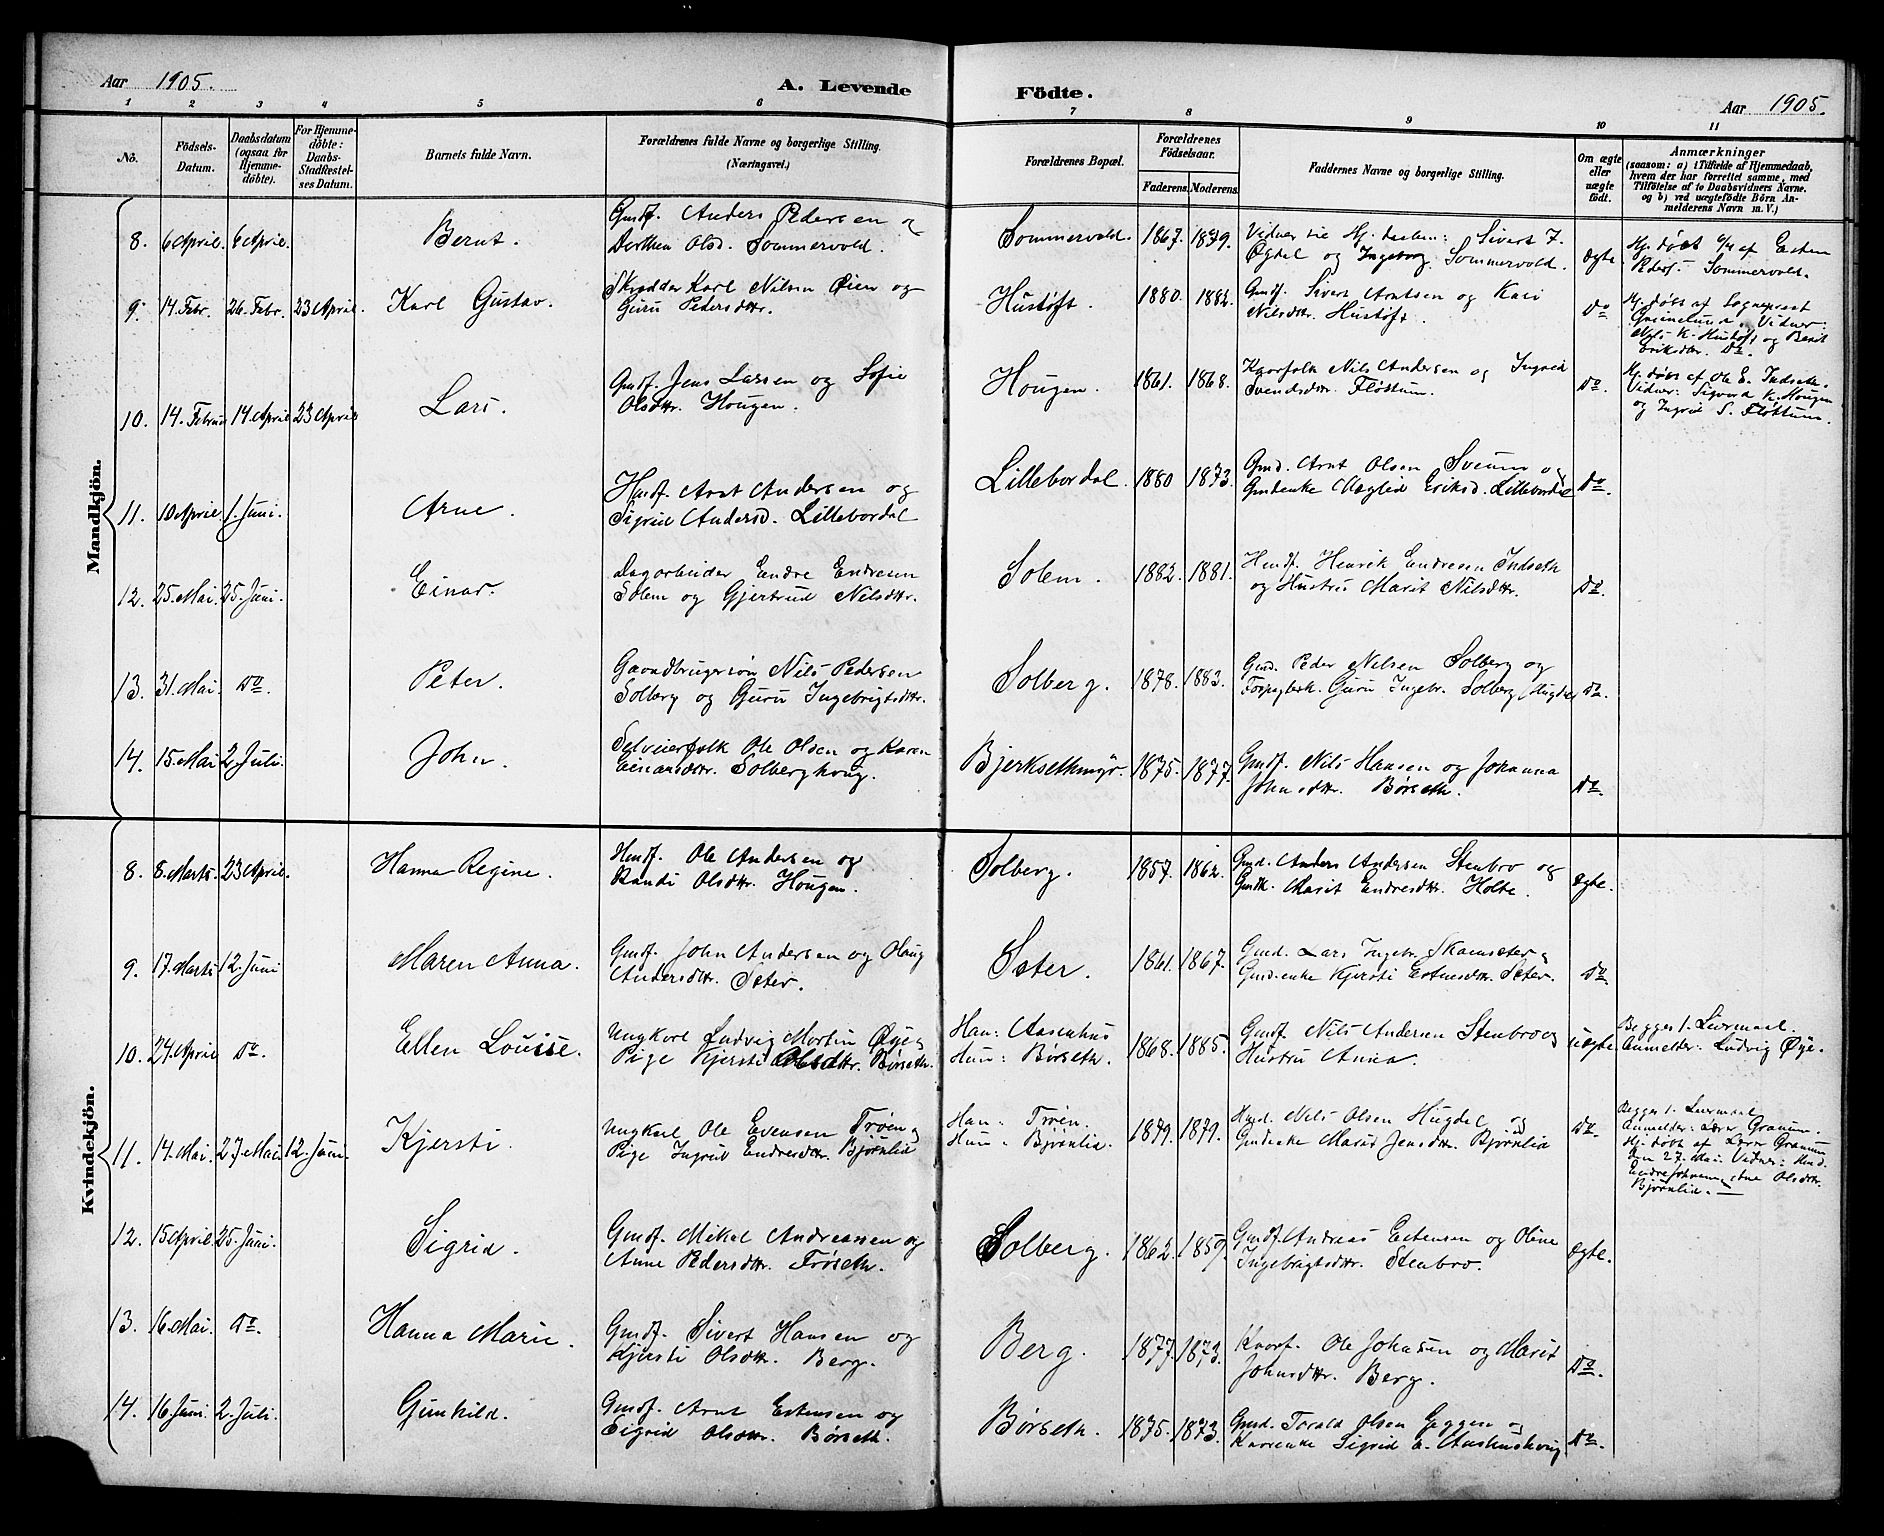 Aar 1905. A. Levende Födte. Aar 1905.
1 2 3 4 5 6 7 8 9 10 11
No. Födsels-Datum. Daabsdatum (ogsaa for Hjemme-döbte). For Hjemme-döbte: Daabs-Stadfæstel-ses Datum. Barnets fulde Navn. Forældrenes fulde Navne og borgerlige Stilling. (Næringsvei.) Forældrenes Bopæl. Forældrenes Födselsaar. Faderens. Moderens. Faddernes Navne og borgerlige Stilling. Om ægte eller uægte födt. Anmærkninger (saasom: a) i Tilfælde af Hjemmedaab, hvem der har forrettet samme, med Tilföielse af to Daabsvidners Navne. og b) ved uægtefödte Börn An-melderens Navn m. V.)
Mandkjön.
8. 6 April. 6 April. Bernt. Gmdf. Anders Pedersen og
Dorthea Olsd. Sommervold. Sommervold. 1867. 1879. Vidner til Hj. daaben: Sivert J.
Øgdal og Ingeborg Sommervold. ægte. Hj. døbt 6/4 af Esten
Peders. Sommervold.
9. 14. Febr. 26. Febr. 23 April. Karl Gustav. Skrædder Karl Nilsen Øien og
Guru Pedersdtr. Hustøft. 1880. 1882. Gmdf. Sivert Arntsen og Kari
Nilsdtr. Hustøft. Do Hj. døbt af Sogneprest
Grønnelund. Vidner:
Nils K. Hustøft og Berit
Eriksdtr. Do.
10. 14. Februar 14. April 23 April Lars. Gmdf. Jens Larsen og Sofie
Olsdtr. Hougen. Hougen. 1861. 1868. Kaarfolk Nils Andersen og Ingrid
Svendsdtr. Fløttum. Do. Hj. døbt af Ole E. Indseth.
Vidner: Sigvard K. Hougen
og Ingrid S. Fløttum.
11. 10 April. 1. Juni. Arne. Husf. Arnt Andersen og
Sigrid Andersd. Lillebordal Lillebordal. 1880 1873. Gmd. Arnt Olsen Sveum og
Gmdenke Maglid Eriksd. Lillebordal Do.
12. 25. Mai. 25. Juni. Einar. Dagarbeider Endre Endresen
Solem og Gjertrud Nilsdtr. Solem. 1882. 1881. Husf. Henrik Endresen Indseth
og Hustru Marit Nilsdtr. Do.
13. 31. Mai. Do. Peter. Gaardbrugersøn Nils Pedersen
Solberg og Guru Ingebrigtsdtr. Solberg. 1878. 1883. Gmd. Peder Nilsen Solberg og
Forpagterk. Guru Ingebr. Solberg (Hugdal) Do.
14. 15. Mai 2. Juli. John. Selveierfolk Ole Olsen og Karen
Einarsdtr. Solberghoug. Bjerksethmyr. 1875. 1877. Gmdf. Nils Hansen og Johanna
Johnsdtr. Børseth. Do.
Kvindekjön.
8. 8. Marts. 23 April. Hanna Regine. Husf. Ole Andersen og
Randi Olsdtr. Hougen. Solberg. 1857. 1862. Gmd. Anders Andersen Stenbro og
Gmdk. Marit Endresdtr. Holte. ægte.
9. 17. Marts 12. Juni Maren Anna. Gmdf. John Andersen og Olaug
Andersdtr. Seter. Seter. 1861. 1867. Gmd. Lars Ingebr. Skamseter og
Gmdenke Kjersti Estensdtr. Seter. Do
10. 24. April Do. Ellen Louise. Ungkarl Ludvig Martin Øye og
Pige Kjersti Olsdtr. Børseth. Han: Aasenhus
Hun: Børseth. 1868. 1885. Gmdf. Nils Andersen Stenbro og
Hustru Anna. uægte. Begges 1. Leiermaal.
Anmelder: Ludvig Øye.
11. 14. Mai. 27. Mai 12. Juni. Kjersti. Ungkarl Ole Evensen Trøen og
Pige Ingrid Endresdtr. Bjørnlia Han: Trøen.
Hun: Bjørnlia. 1879. 1879. Husd. Nils Olsen Hugdal og
Gmdenke Marit Jensdtr. Bjørnlia Do. Begges 1. Leiermaal
Anmelder: Lærer Granum.
Hj. døbt af Lærer Granum
den 27. Mai. Vidner: Husd.
Endre Johnsen, Ane Olsdtr.
Bjørnlia. —
12. 15 April. 25. Juni. Sigrid. Gmdf. Mikal Andreassen og
Anne Pedersdtr. Frøseth. Solberg. 1862. 1859. Gmdf. Andreas Estensen og Oline
Ingebrigtsdtr. Stenbro. ægte.
13. 16. Mai. Do. Hanna Marie. Gmdf. Sivert Hansen og
Kjersti Olsdtr. Berg. Berg. 1877. 1873. Kaarf. Ole Johnsen og Marit
Johnsdtr. Berg. Do.
14. 16. Juni. 2. Juli. Gunhild. Gmdf. Arnt Estensen og
Sigrid Olsdtr. Børseth. Børseth. 1875. 1873. Gmd. Torald Olsen Eggen og
Kaarenke Sigrid A. Aashushoug Do.